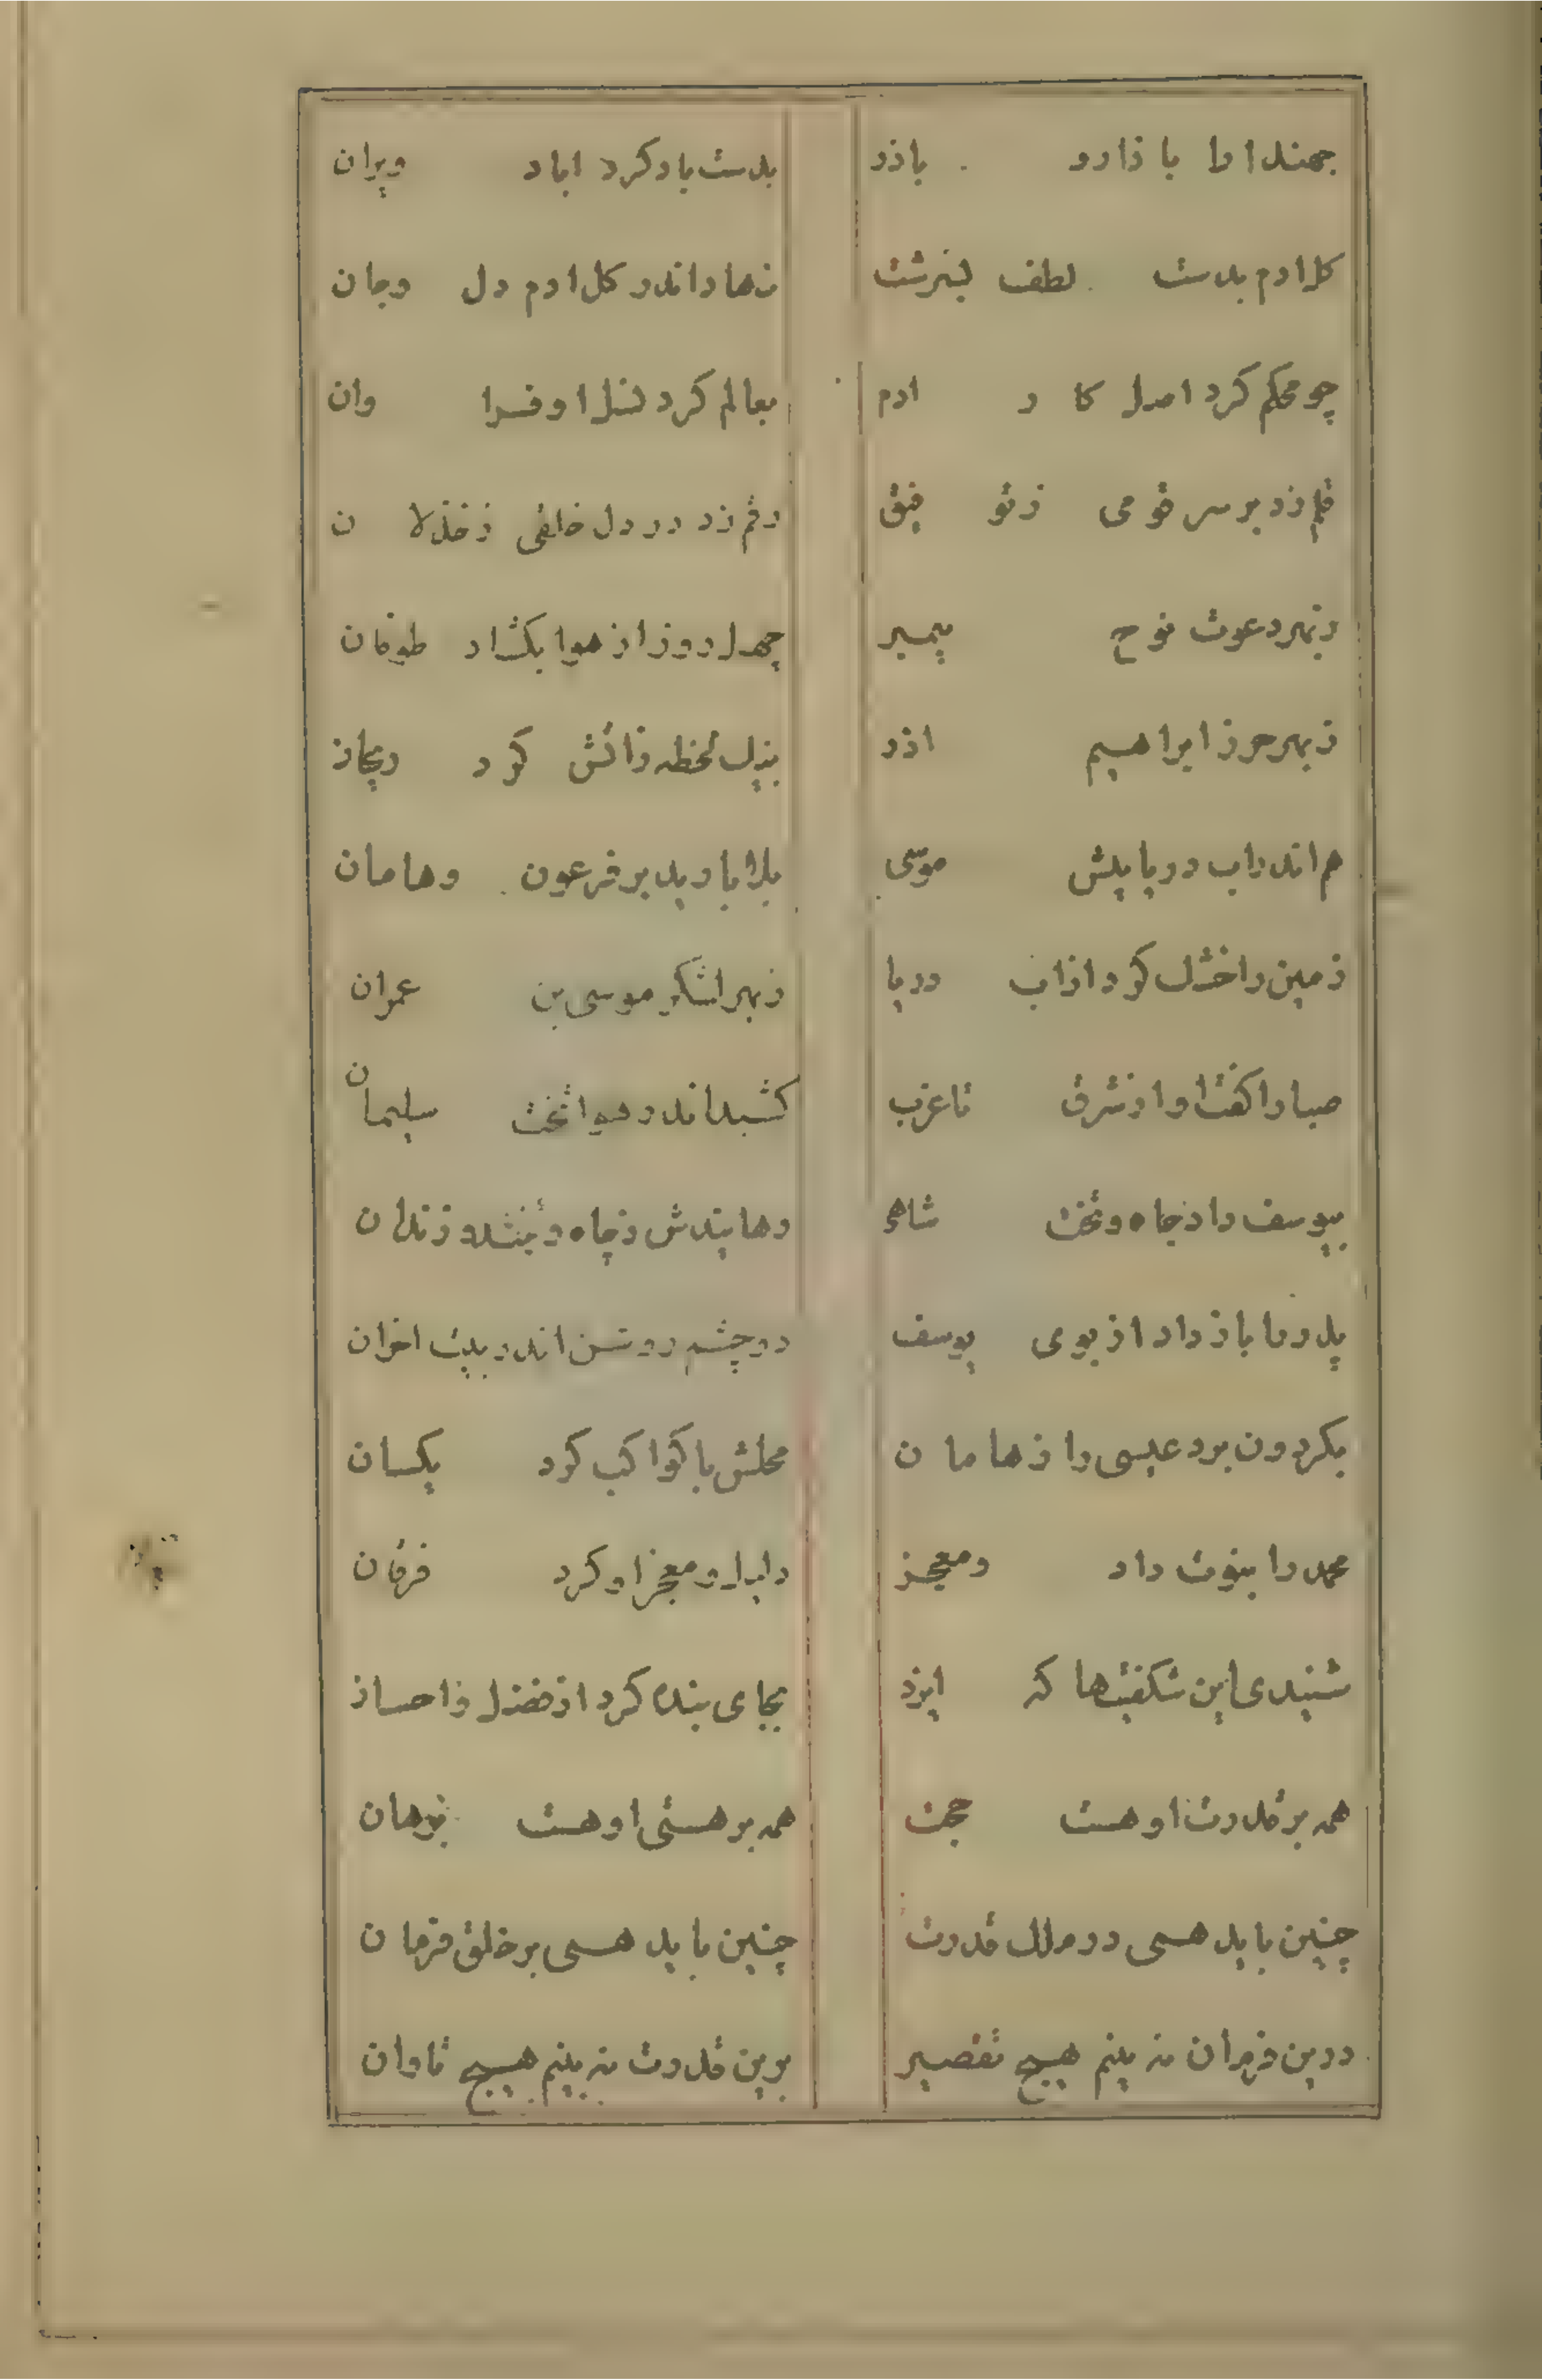 جهندا را با دارو بادرد بدست باد کرد اباد ویران
کل ادم بدست لطف بسرشت نهاد اندر کل ادم دل و جان
چو محکم کرد اصل کار ادم بعالم کرد نسل او فراوان
قلم زد بر سر قومی ز توفیق رقم زد در دل خلقی ز خذلان
ز بهر دعوت نوح پیمبر چهل روز از هوا بکشاد طوفان
ز بهر حرز ابراهیم اذر بیک لحظه ز اتش کرد ریحان
هم اندر اب دریا پیش موسی بلا بارید بر فرعون و هامان
زمین را خشک کرد از اب دریا ز بهر لشکر موسی بن عمران
صبا را کفت او از شرق تا غرب کشید اندر هوا تخت سلیمان
بیوسف داد جاه و تخت شاهی رهانیدش ز چاه و بند و زندان
پدر را باز داد از بوی یوسف دو چشم روشن اندر بیت احزان
بکردون برد عیسی را ز هامان محلش با کواکب کرد یکسان
محمد را نبوت داد و معجز دلیل و معجز او کرد فرقان
شنیدی این شکفتیها که ایزد بجای بنده کرد از فضل و احسان
همه بر قدرت او هست حجت همه بر هستی او هست برهان
چنین باید همی در ملک قدرت چنین باید همی بر خلق فرمان
درین فرمان نه بینم هیچ تقصیر برین قدرت نه بینم هیچ تاوان